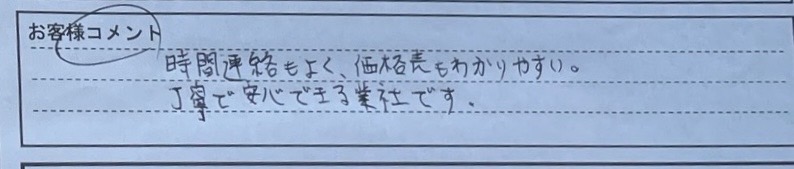 お客様コメント
時間連絡もよく、価格表もわかりやすい。
丁寧で安心できる業社です.